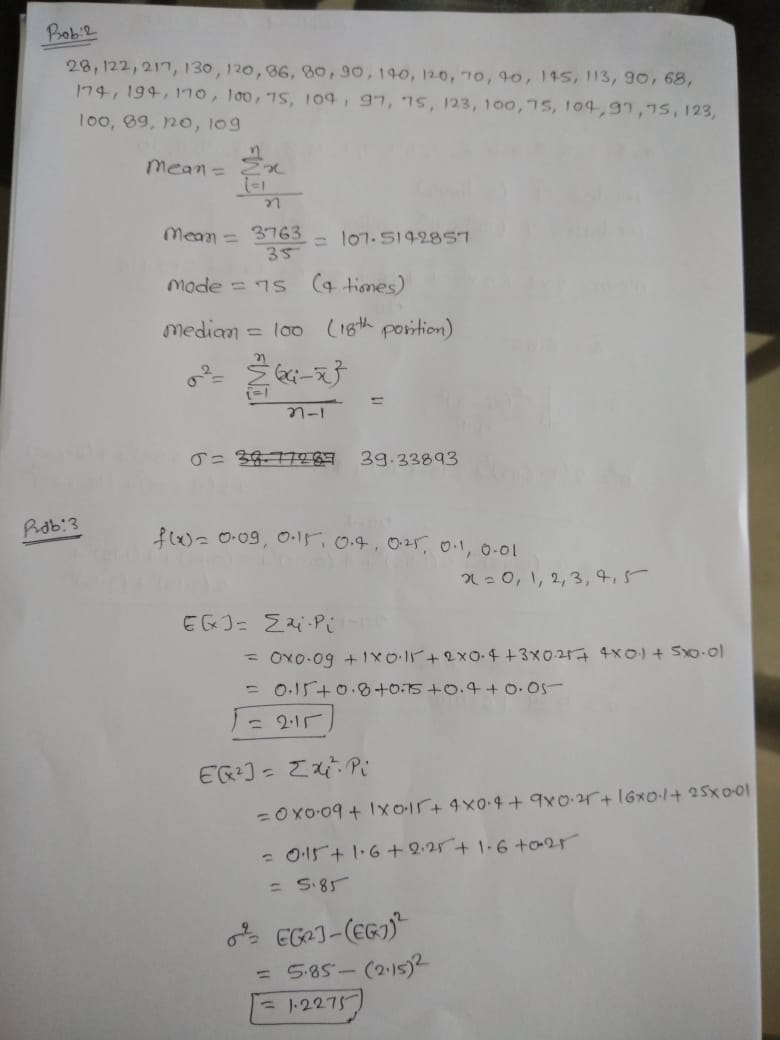 Prob:2
28, 122, 217, 130, 120, 86, 80, 90, 140, 120, 70, 40, 145, 113, 90, 68,
174, 194, 170, 100, 75, 104, 97, 75, 123, 100, 75, 104, 97, 75, 123,
100, 89, 120, 109
Mean = n∑i=1 x / n
Mean = 3763/35 = 107.5142857
Mode = 75 (4 times)
Median = 100 (18th position)
σ² = n∑i=1 (xi-x̄)² / n-1 =
σ = 39.33893
Prob:3
f(x) = 0.09, 0.15, 0.4, 0.25, 0.1, 0.01
x = 0, 1, 2, 3, 4, 5
E[x] = Σxi.Pi
= 0x0.09 + 1x0.15 + 2x0.4 + 3x0.25 + 4x0.1 + 5x0.01
= 0.15 + 0.8 + 0.75 + 0.4 + 0.05
= 2.15
E[x²] = Σxi².Pi
= 0x0.09 + 1x0.15 + 4x0.4 + 9x0.25 + 16x0.1 + 25x0.01
= 0.15 + 1.6 + 2.25 + 1.6 + 0.25
= 5.85
σ² = E[x2] - (E[x])²
= 5.85 - (2.15)²
= 1.2275